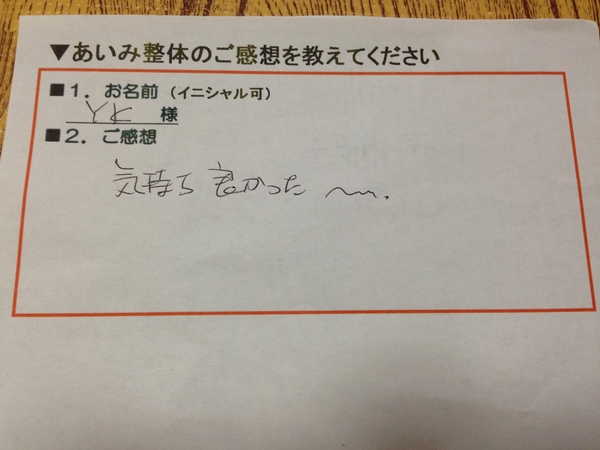 ▼あいみ整体のご感想を教えてください
■1．お名前（イニシャル可）
YK 様
■2．ご感想
気持ち良かった〜〜.